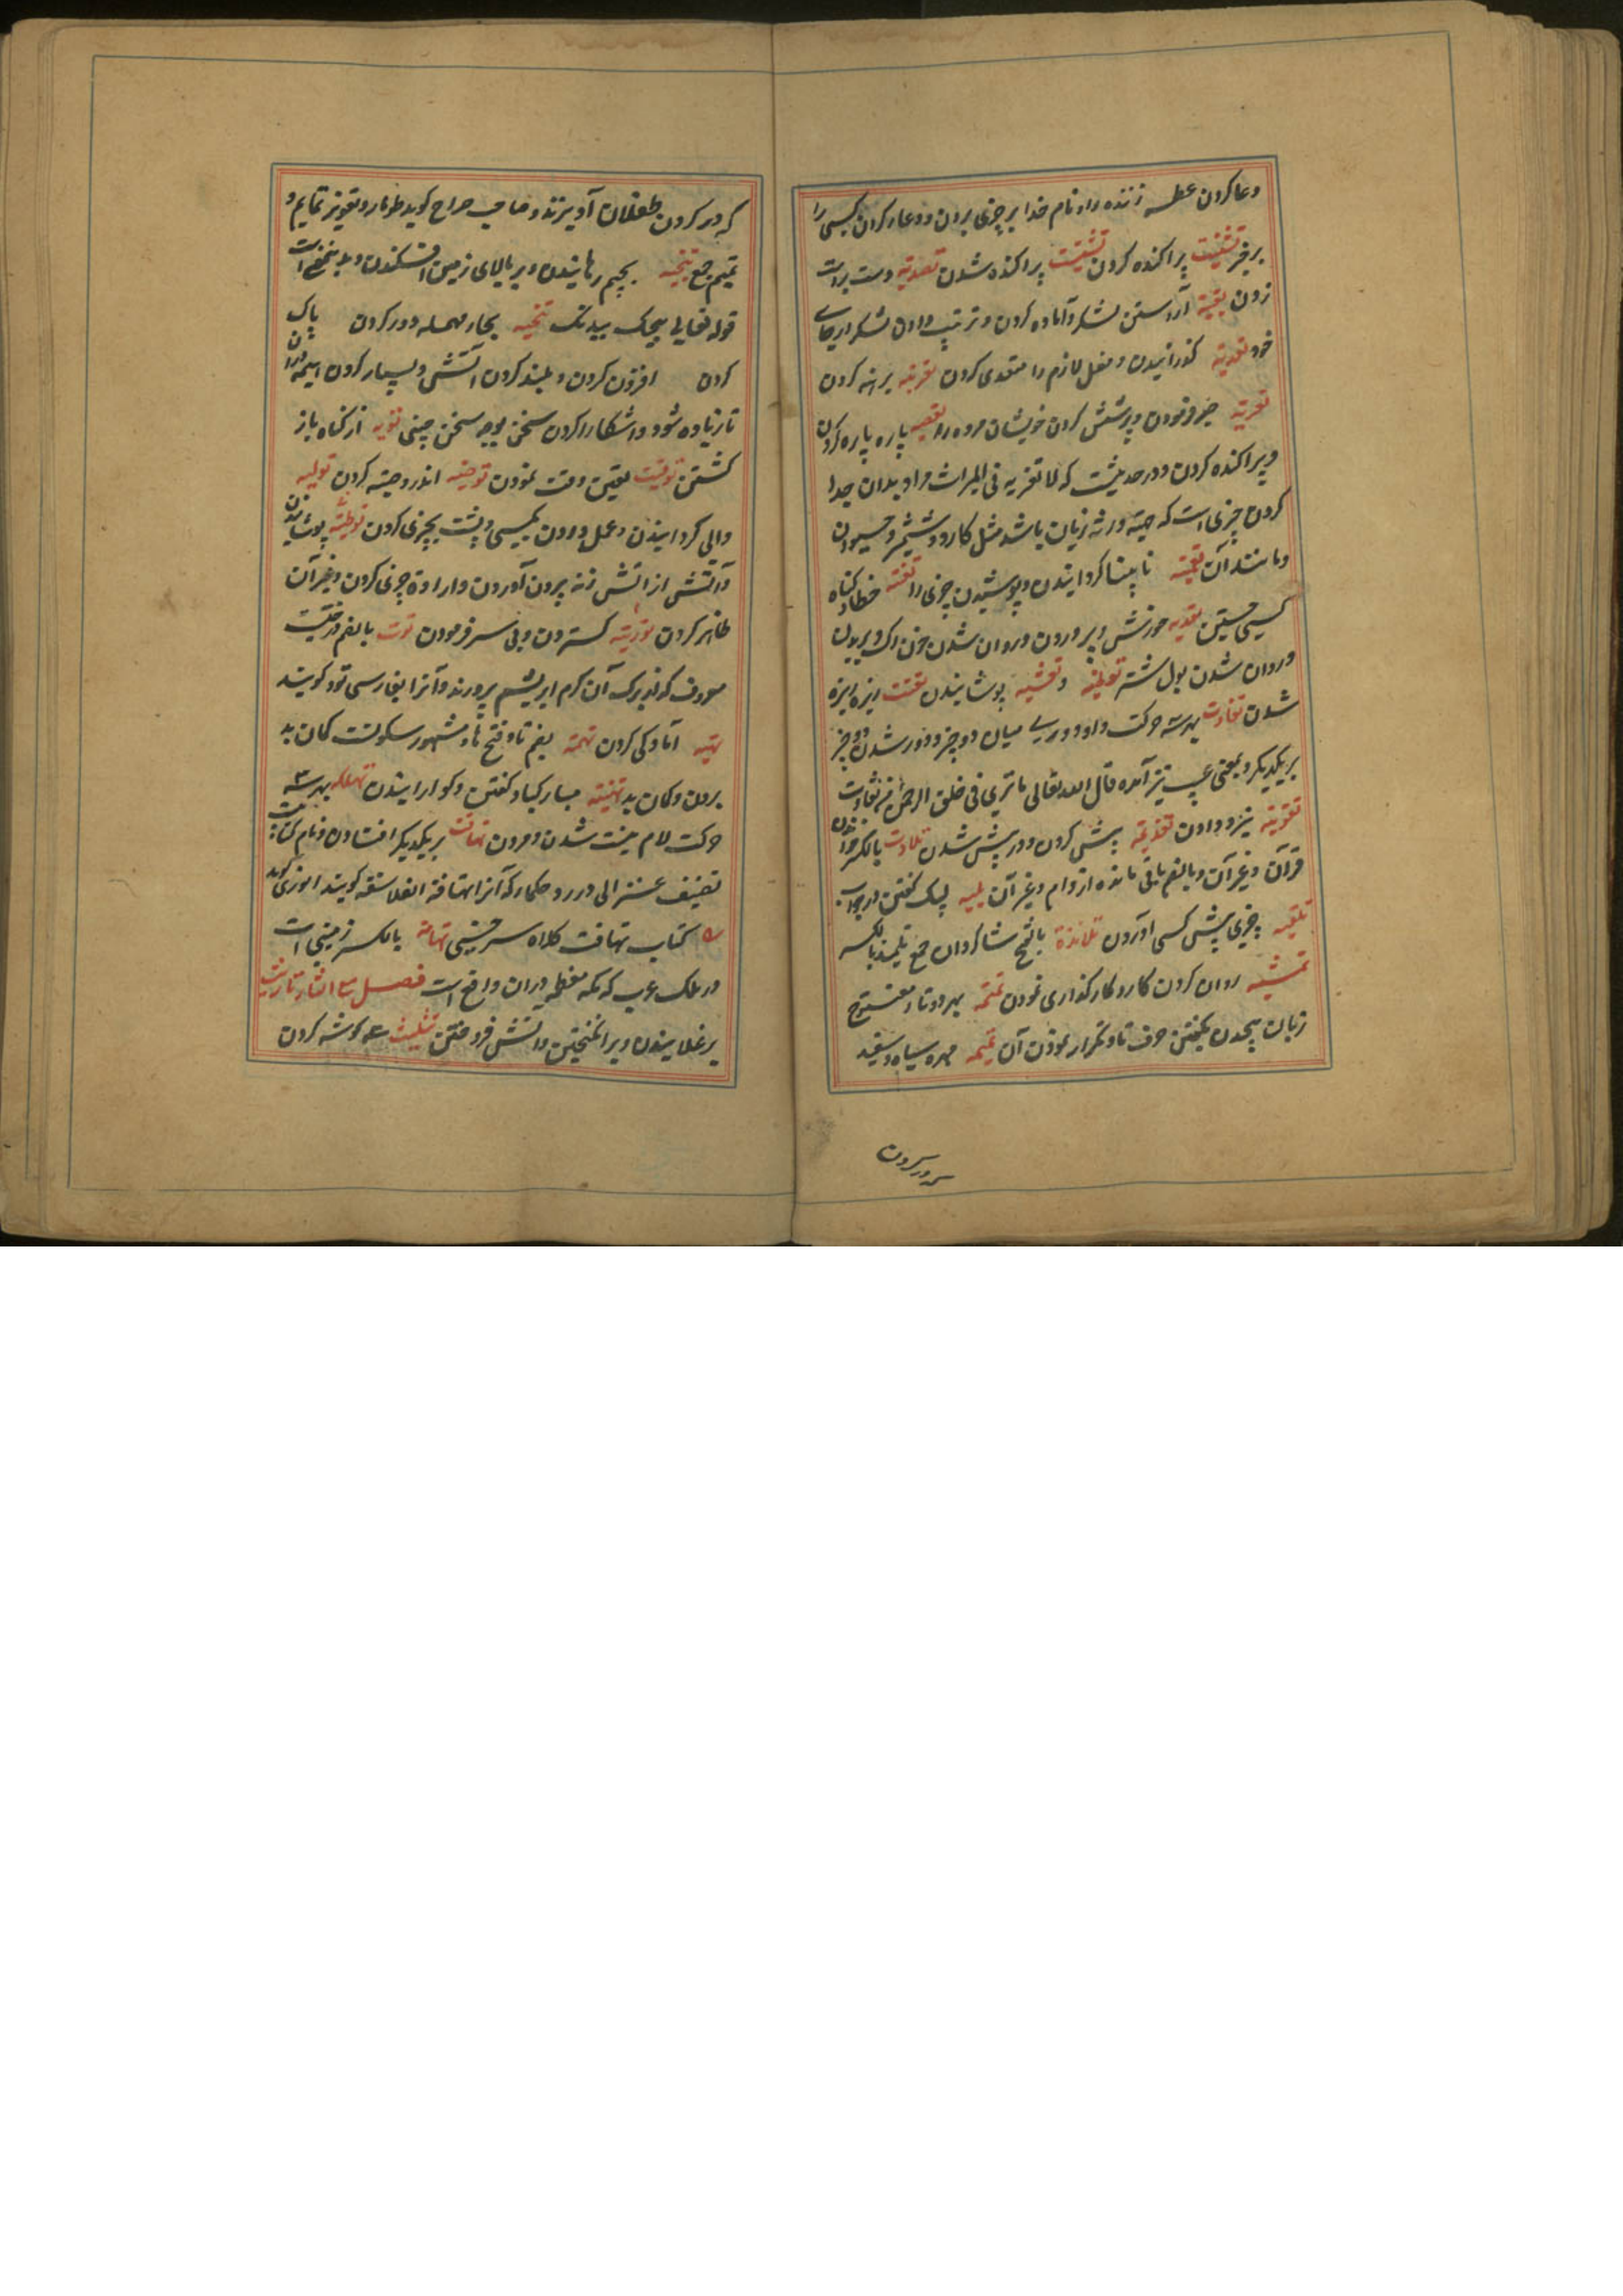 دعا کردن عطسه زننده را و نام خدا بر چیزی بردن و دعا کردن کسی را
بر خیر تشتیت پراکنده کردن تشتت پراکنده شدن تصدیه دست بر دست
زدن تعبیه آراستن لشکر و آماده کردن و ترتیب دادن لشکر در جای
خود تعدیه گذرانیدن و فعل لازم را متعدی کردن تعریه برهنه کردن
تعزیه صبر فرمودن و پرسش کردن خویشان مرده را تعضیه پاره پاره کردن
و پراکنده کردن و در حدیثست که لا تعضیه فی المیراث مراد بدان جدا
کردن چیزی است که حصه ورثه زیان باشد مثل کارد و شمشیر و
و مانند آن تعمیه نابینا گردانیدن و پوشیدن چیزی را خطا و گناه
کسی جستن تغذیه خورش و پروردن و روان شدن خون از رگ و بریدن
و روان شدن بول شتر و تغشیه پوشانیدن تفتت ریزه ریزه
شدن تفاوت بهر سه حرکت واو دوری میان دو چیز و دور شدن دو چیز
از یکدیگر و بمعنی عیب نیز آمده قال الله تعالی ما تری فی خلق الرحمن من تفاوت
تقویه نیرو دادن تقدمه پیش کردن و در پیش شدن تلاوت بالکسر خواندن
قرآن و غیر آن و بالضم باقی مانده از وام و غیر آن تلبیه لبیک گفتن در جواب
چیزی پیش کسی آوردن تلامذة بالفتح شاگردان جمع تلمیذ بالکسر
تمشیه روان کردن کار و کارگذاری نمودن تمتمه بهر دو تاء مفتوح
زبان پیچیدن بگفتن حرف تا و تکرار نمودن آن تمیمه مهره سیاه و سفید
که در گردن
که در گردن طفلان آویزند و صاحب صراح گوید طومار و تعویذ تمایم و
تمیم جمع تنجیه بجیم رهانیدن و بر بالای زمین افکندن و بدین معنی است
قوله تعالی ننجیک ببدنک تنحیه بحاء مهمله دور کردن پاک
کردن افزون کردن و بلند کردن آتش و بسیار کردن هیمه در آن
تا زیاده شود و آشکارا کردن سخن بوجه سخن چینی توبه از گناه باز
گشتن توقیت تعیین وقت نمودن توصیه اندرز و وصیت کردن تولیه
والی گردانیدن و عمل دادن بکسی و پشت بچیزی کردن پوشانیدن
و آتش از آتش زنه بیرون آوردن و اراده چیزی کردن و غیر آن
ظاهر کردن گستردن و پی سر فرمودن توت بالضم درختیست
معروف که از برک آن کرم ابریشم پرورند و آنرا بفارسی تود گویند
تهیه آمادگی کردن تهمة بضم تا و فتح ها و مشهور سکونست گمان بد
بردن و گمان بد تهنیه مبارکباد گفتن و گوارا نیدن تهلکه بهر سه
حرکت لام نیست شدن و مردن تهافت بر یکدیگر افتادن و نام کتابیست
تصنیف غزالی در رد حکما که آنرا تهافة الفلاسفه گویند انوری گوید
کتاب تهافت کلاه سر تهامة بالکسر زمینی است
در ملک عرب که مکه معظمه در آن واقع است فصل مع الثاء تارث
بر غلانیدن و بر انگیختن و آتش افروختن تثلیث سه گوشه کردن